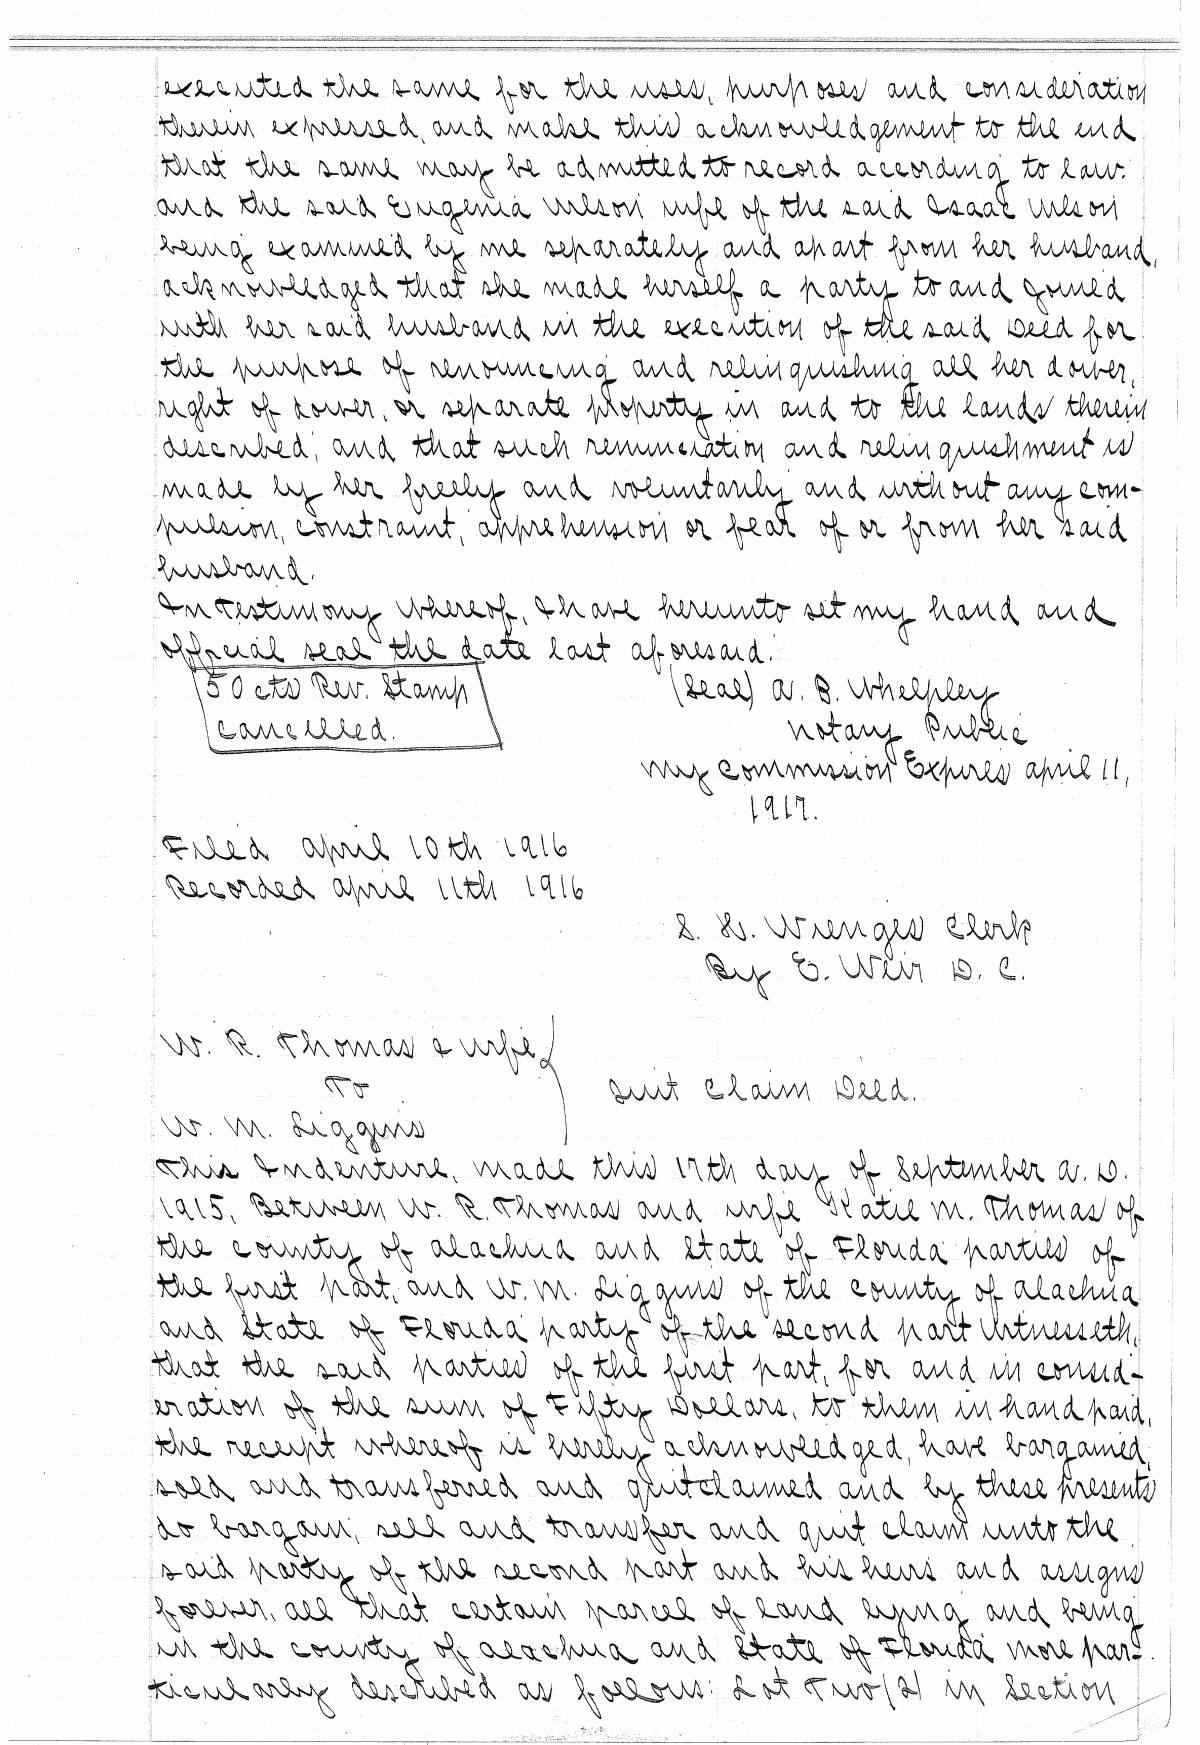 executed the same for the uses, purposes and consideration
therein expressed, and make this acknowledgement to the end
that the same may be admitted to record according to law.
and the said Eugenia Wilson wife of the said Isaac Wilson
being examined by me separately and apart from her husband,
acknowledged that she made herself a party to and joined
with her said husband in the execution of the said Deed for
the purpose of renouncing and relinquishing all her dower,
right of dower, or separate property in and to the lands therein
described, and that such renunciation and relinquishment is
made by her freely and voluntarily and without any com-
pulsion, constraint, apprehension or fear of or from her said
husband.
In Testimony Whereof, I have hereunto set my hand and
official seal the date last aforesaid.
50 cts Rev. Stamp
cancelled.
(Seal) A. B. Whelpley
Notary Public
My Commission Expires April 11,
1917.
Filed April 10th 1916
Recorded April 11th 1916
S. H. Wienges Clerk
By E. Weir D. C.
W. R. Thomas & wife
To
W. M. Liggins
Quit Claim Deed.
This Indenture, made this 17th day of September A. D.
1915, Between W. R. Thomas and wife Katie M. Thomas of
the county of Alachua and State of Florida parties of
the first part, and W. M. Liggins of the county of Alachua
and State of Florida party of the second part Witnesseth,
that the said parties of the first part, for and in consid-
eration of the sum of Fifty Dollars, to them in hand paid,
the receipt whereof is hereby acknowledged, have bargained,
sold and transferred and quitclaimed and by these presents
do bargain, sell and transfer and quit claim unto the
said party of the second part and his heirs and assigns
forever, all that certain parcel of land lying and being
in the county of Alachua and State of Florida more par-
ticularly described as follows: Lot Two (2) in Section